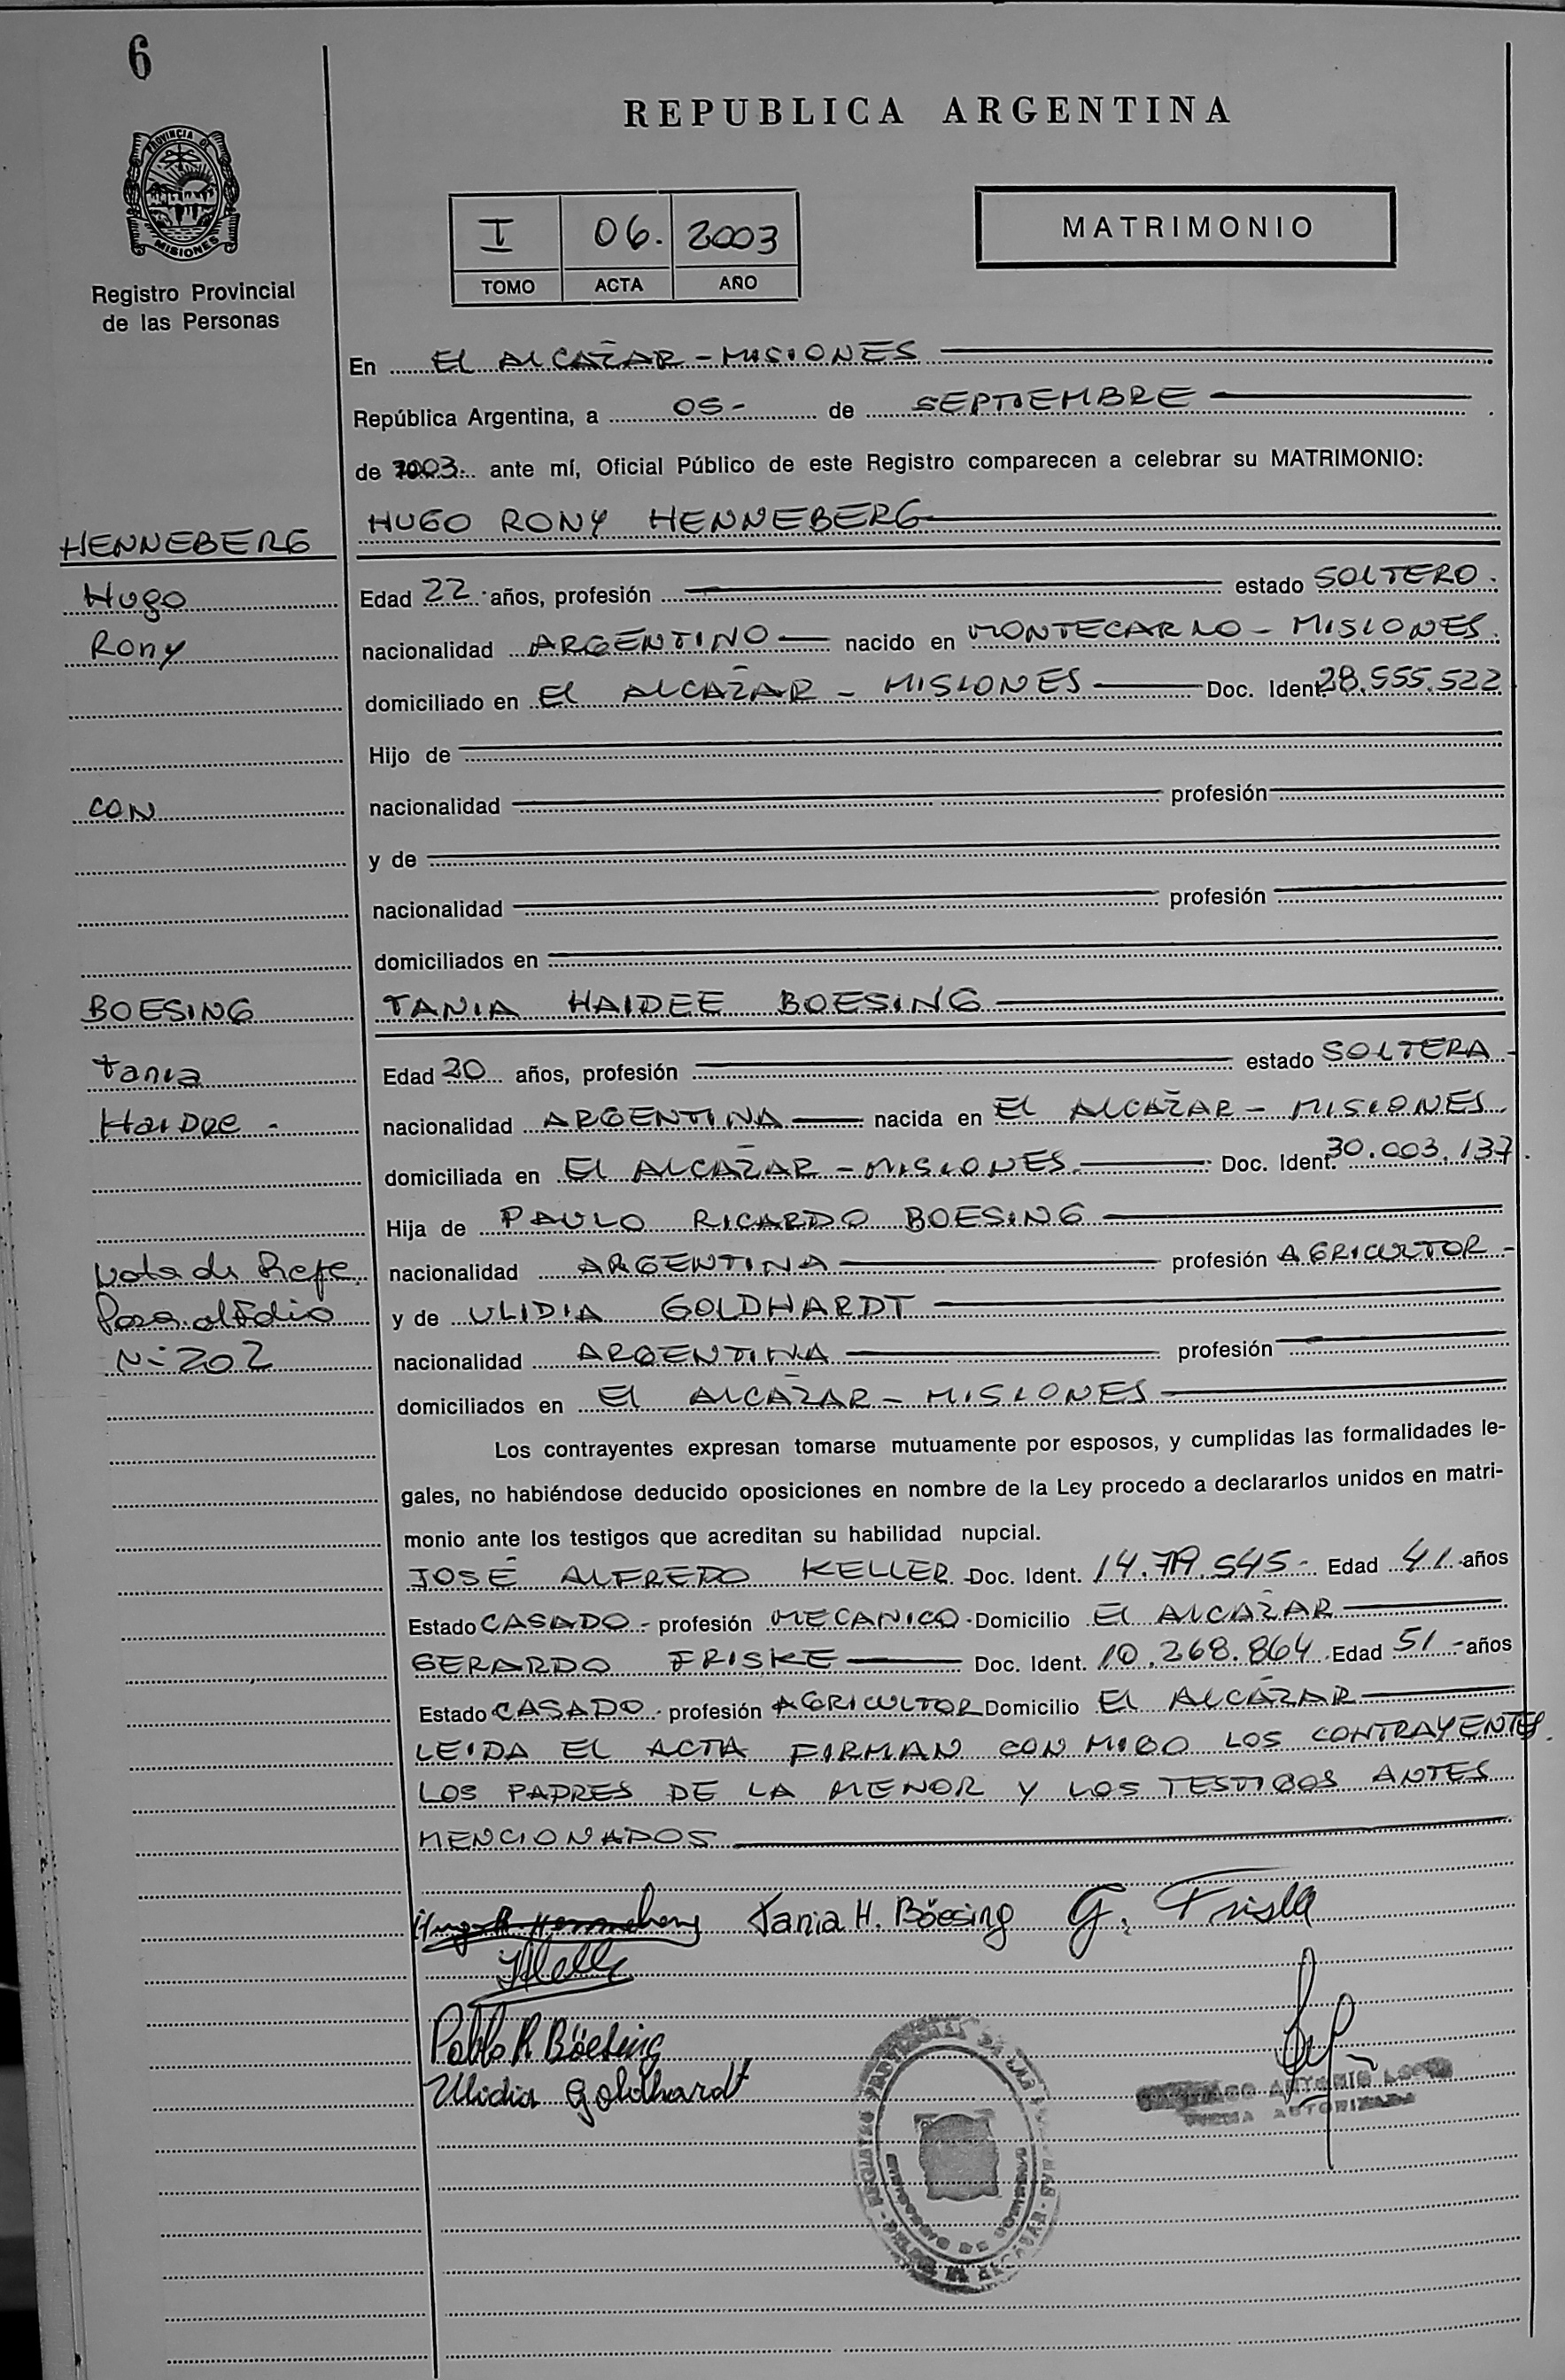 6
REPUBLICA ARGENTINA
PROVINCIA DE
MISIONES
Registro Provincial
de las Personas
I 06. 2003
TOMO ACTA AÑO
MATRIMONIO
En EL ALCAZAR - MISIONES
República Argentina, a 05- de SEPTIEMBRE
de 2003. ante mí, Oficial Público de este Registro comparecen a celebrar su MATRIMONIO:
HENNEBERG
HUGO RONY HENNEBERG
Hugo
Edad 22 años, profesión estado SOLTERO.
Rony
nacionalidad ARGENTINO nacido en MONTECARLO - MISIONES.
domiciliado en EL ALCAZAR - MISIONES Doc. Ident. 28.555.522
Hijo de
CON
nacionalidad profesión
y de
nacionalidad profesión
domiciliados en
BOESING
TANIA HAIDEE BOESING
Tania
Edad 20 años, profesión estado SOLTERA -
Haidee -
nacionalidad ARGENTINA nacida en EL ALCAZAR - MISIONES.
domiciliada en EL ALCAZAR - MISIONES. Doc. Ident. 30.003.137.
Hija de PAULO RICARDO BOESING
Nota de Refe
nacionalidad ARGENTINA profesión AGRICULTOR -
y de ULIDIA GOLDHARDT
Nº 202
nacionalidad ARGENTINA profesión
domiciliados en EL ALCAZAR - MISIONES
Los contrayentes expresan tomarse mutuamente por esposos, y cumplidas las formalidades le-
gales, no habiéndose deducido oposiciones en nombre de la Ley procedo a declararlos unidos en matri-
monio ante los testigos que acreditan su habilidad nupcial.
JOSÉ ALFREDO KELLER Doc. Ident. 14.719.545- Edad 41 años
Estado CASADO - profesión MECANICO - Domicilio EL ALCAZAR
GERARDO FRISKE Doc. Ident. 10.268.864 Edad 51 - años
Estado CASADO - profesión AGRICULTOR Domicilio EL ALCAZAR
LEIDA EL ACTA FIRMAN CON MIGO LOS CONTRAYENTES.
LOS PADRES DE LA MENOR Y LOS TESTIGOS ANTES
MENCIONADOS
Tania H. Böesing G.
Pablo R. Böesing
Ulidia Goldhardt
ANTONIO
FIRMA AUTORIZADA